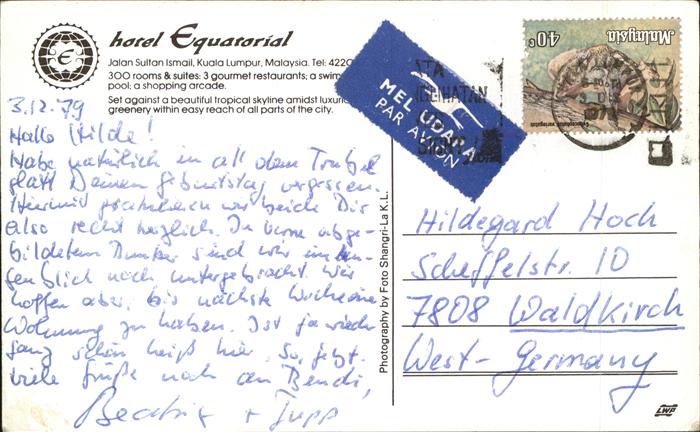 hotel Equatorial
Jalan Sultan Ismail, Kuala Lumpur, Malaysia. Tel: 4220
300 rooms & suites: 3 gourmet restaurants; a swim
pool; a shopping arcade.
Set against a beautiful tropical skyline amidst luxuri
greenery within easy reach of all parts of the city.
MEL UDARA
PAR AVION
Malaysia
40¢
3.12.79
Hallo Hilde!
Habe natürlich in all dem Trubel
glatt Deinen Geburtstag vergessen.
Hiermit gratulieren wir beide Dir
also recht herzlich. In vorne abge-
bildetem Bunker sind wir im Au-
genblick noch untergebracht. Wir
hoffen aber, bis nächste Woche eine
Wohnung zu haben. Ist ja wieder
ganz schön heiß hier. So, jetzt
viele Grüße noch an Bendi,
Beatrix + Jupp
Photography by Foto Shangri-La K.L.
Hildegard Hoch
Scheffelstr. 10
7808 Waldkirch
West-Germany
LWP